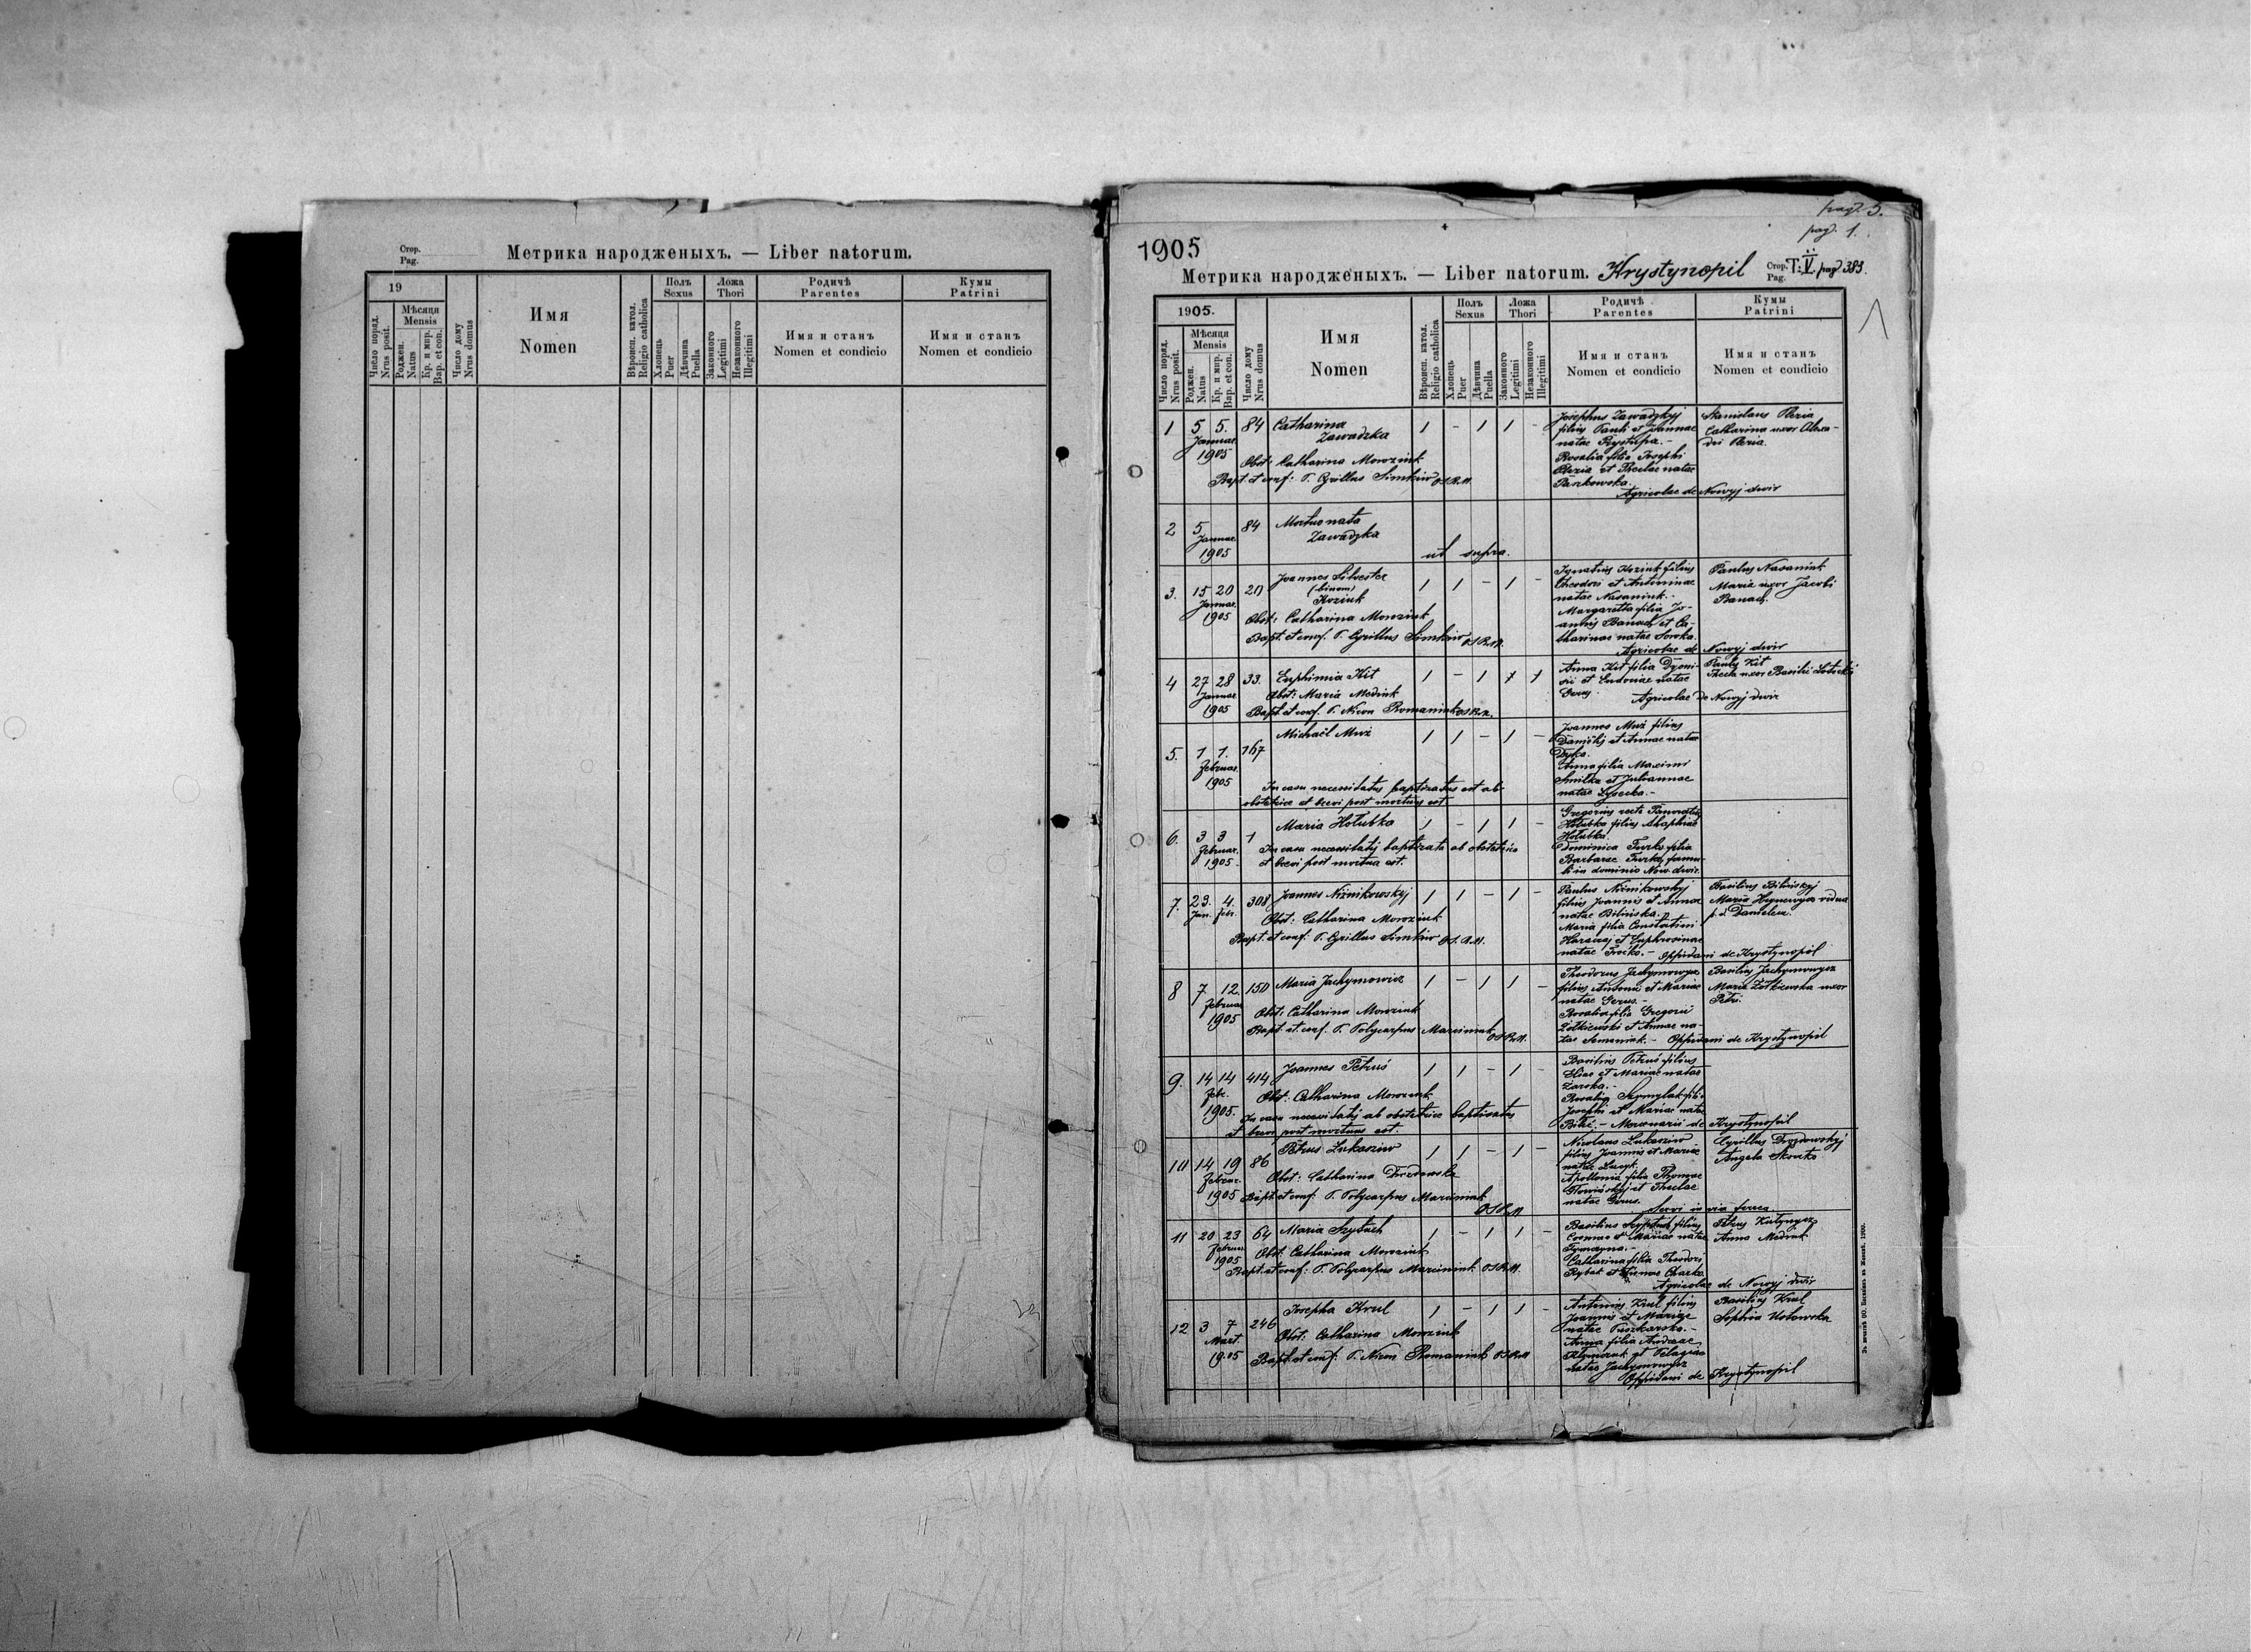 Стор.
Pag.
Метрика народженыхъ. — Liber natorum.
19
Число поряд.
Nrus posit.
Мѣсяця
Mensis
Рожден.
Natus
Кр. и мир.
Bap. et con.
Число дому
Nrus domus
Имя
Nomen
Вѣроисп. катол.
Religio catholica
Полъ
Sexus
Хлопець
Puer
Дѣвчина
Puella
Ложа
Thori
Законного
Legitimi
Незаконного
Illegitimi
Родичѣ
Parentes
Имя и станъ
Nomen et condicio
Кумы
Patrini
Имя и станъ
Nomen et condicio
pag. 5.
pag. 1.
1905
Метрика народженыхъ. — Liber natorum. Krystynopil
Стор.
Pag.
T. V. pag 383.
1905.
Число поряд.
Nrus posit.
Мѣсяця
Mensis
Рожден.
Natus
Кр. и мир.
Bap. et con.
Число дому
Nrus domus
Имя
Nomen
Вѣроисп. катол.
Religio catholica
Полъ
Sexus
Хлопець
Puer
Дѣвчина
Puella
Ложа
Thori
Законного
Legitimi
Незаконного
Illegitimi
Родичѣ
Parentes
Имя и станъ
Nomen et condicio
Кумы
Patrini
Имя и станъ
Nomen et condicio
1 5 5. 84 Catharina 1 - 1 1 -
Januar. Zawadzka
1905
Obst: Catharina Morozink
Bapt et conf: P. Cyrillus Simkiw OSBM.
Josephus Zawadzkyj
filius Pauli et Joannae
natae Rystupa. -
Rosalia filia Josephi
et Theclae natae
Paszkowska.
Agricolae de Nowyj dwir
Stanislaus
Catharina uxor Alexan-
dri
2 5 84 Mortuo nata
Januar. Zawadzka
1905
ut supra.
3. 15 20 20 Joannes Silvester 1 1 - 1 -
Januar. (binom)
1905 Koziuk
Obst: Catharina Morozink
Bapt. et conf. P. Cyrillus Simkiw OSBM.
Ignatius Koziuk filius
Theodori et Antoninae
natae Nasaniuk. -
Margaretta filia Jo-
annis Banach et Ca-
tharinae natae Soroka.
Agricolae de Nowyj dwir
Paulus Nasaniuk
Maria uxor Jacobi
Banach.
4 27 28 33. Euphimia Kit 1 - 1
Januar Obst: Maria Medink
1905 Bapt. et conf. P. Nicon Romaniuk OSBM.
Anna Kit filia Dyoni-
sii et Eudoxiae natae
Gerus.
Agricolae de Nowyj dwir
Pauly Kit
Thecla uxor Basilii
5. 1 1. 167 Michaël Muż 1 1 - 1 -
Februar.
1905
In casu necessitatis baptizatus est ab
obstetrice et brevi post mortuus est.
Joannes Muż filius
Danielis et Annae natae
Dyka.
Anna filia Maximi
Smilka et Juliannae
natae Lysecka. -
6. 3 3 1 Maria Hołubka 1 - 1 1 -
Februar.
1905
In casu necessitatis baptizata ab obstetrice
et brevi post mortua est.
Gregorius recte
Hołubka filius Ahaphiae
Hołubka.
Dominica Turko filia
Barbarae Turko, famu-
li in dominio Now. dwir.
7. 23. 4. 308 Joannes Niżnikowskyj 1 1 - 1 -
Jan. Febr.
Obst: Catharina Morozink
Bapt. et conf. P. Cyrillus Simkiw OSBM.
Paulus Niżnikowskyj
filius Joannis et Annae
natae Bilinska. -
Maria filia Constantini
Harasaj et Euphrosinae
natae Troćko. - Oppidani de Krystynopil
Basilius Bilinskyj
Maria vidua
p. d. Danielem.
8 7 12. 150 Maria Jachymowicz 1 - 1 1 -
Februar
1905
Obst: Catharina Morozink
Bapt. et conf. P. Polycarpus Marciniuk OSBM.
Theodorus Jachymowycz
filius Antonii et Mariae
natae Gerus. -
Rosalia filia Gregorii
Żołkiewski et Annae na-
tae Semeniuk. - Oppidani de Krystynopil
Basilius Jachymowycz
Maria Żołkiewska uxor
Petri.
9. 14 14 414 Joannes Petruś 1 1 - 1 -
Febr.
1905.
Obst: Catharina Morozink
In casu necessitatis ab obstetrice baptizatus
et brevi post mortuus est.
Basilius Petruś filius
Eliae et Mariae natae
Żarska. -
Rosalia filia
Josephi et Mariae natae
- Mercenarii de Krystynopil
10 14 19 86 Petrus Lukasziw 1 1 - 1 -
Februar.
1905
Obst: Catharina Drozdowska
Bapt. et conf: P. Polycarpus Marciniuk
OSBM
Nicolaus Lukasziw
filius Joannis et Mariae
natae
Apollonia filia Thomae
et Theclae
natae Gerus.
Servi in via ferrea
Cyrillus Drozdowskyj
Angela
11 20 23 64 Maria Szybuch 1 - 1 1 -
Februar
1905
Obst: Catharina Morozink
Bapt. et conf: P. Polycarpus Marciniuk OSBM.
Basilius filius
Cosmae et Mariae natae
Catharina filia Theodori
Rybak et Annae
Agricolae de Nowyj dwir
Petrus
Anna Medink
12 3 7 246 Josepha Krul 1 - 1 1 -
Mart.
1905
Obst: Catharina Morozink
Bapt. et conf: P. Nicon Romaniuk OSBM
Antonius Krul filius
Joannis et Mariae
natae Puszkarska. -
Anna filia Andreae
et Pelagiae
natae Jachymowycz
Oppidani de Krystynopil
Basilius Krul
Sophia